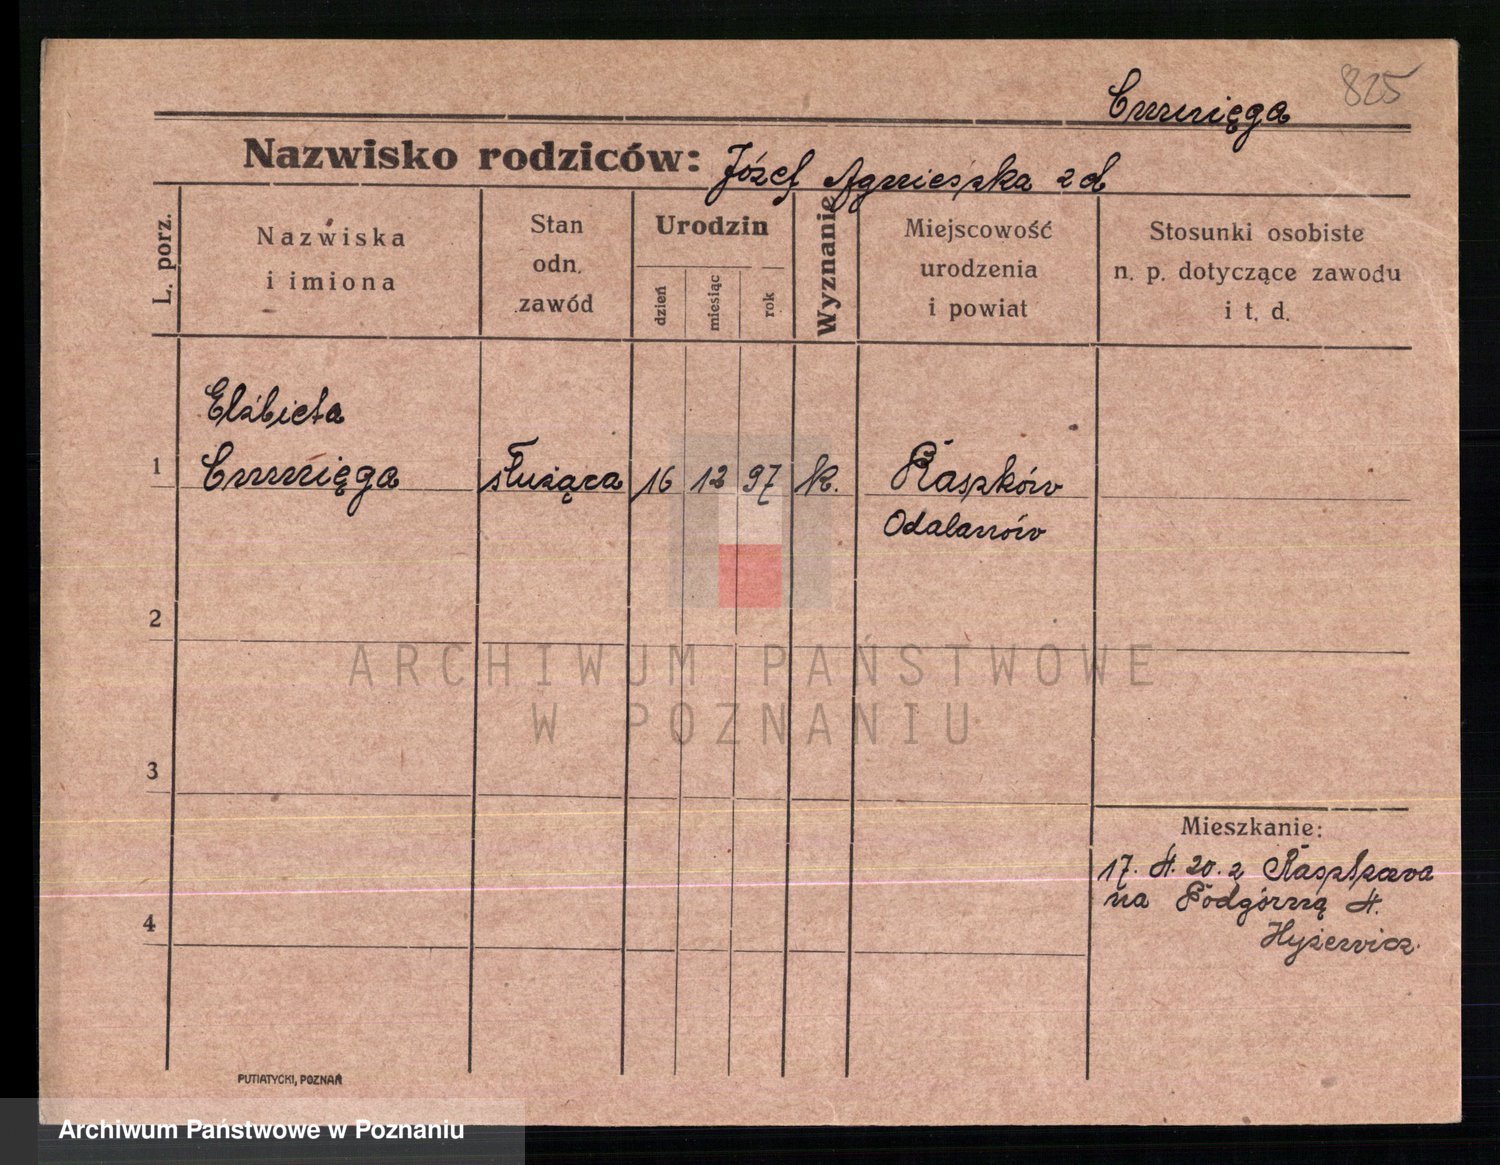 825
Cmunięga
Nazwisko rodziców: Józef Agnieszka z d
L. porz.
Nazwiska
i imiona
Stan
odn.
zawód
Urodzin
dzień
miesiąc
rok
Wyznanie
Miejscowość
urodzenia
i powiat
Stosunki osobiste
n. p. dotyczące zawodu
i t. d.
Elżbieta
1 Cmunięga służąca 16 12 97 k. Raszków
Odalanów
2
ARCHIWUM PAŃSTWOWE
W POZNANIU
3
Mieszkanie:
17. 4. 20. z Raszkowa
na Podgórną 4.
4
Hyżewicz.
PUTIATYCKI, POZNAŃ
Archiwum Państwowe w Poznaniu